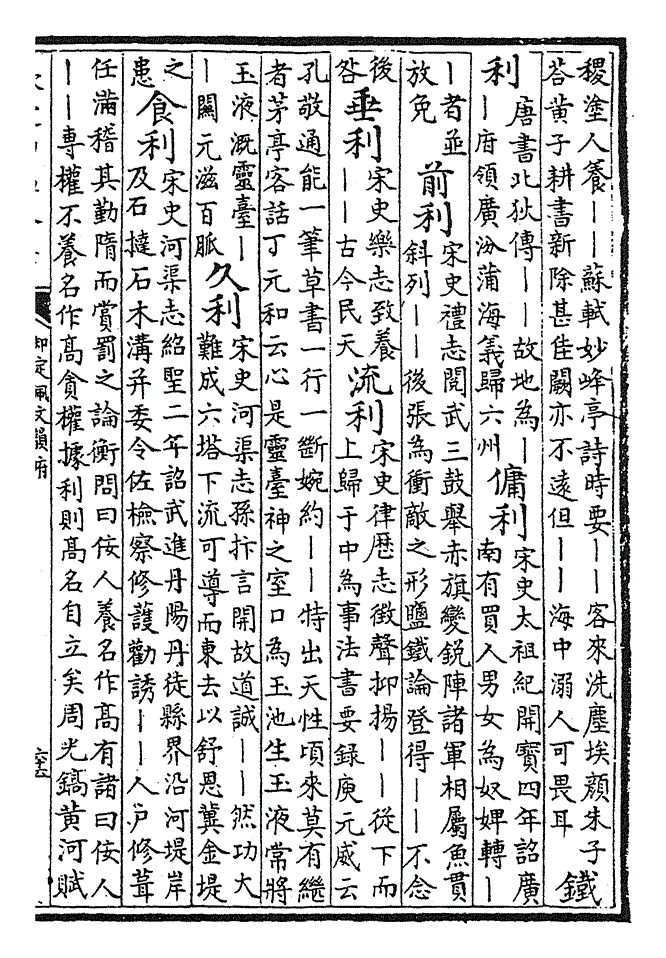 稷塗人養——蘇軾妙峰亭詩時要——客來洗塵埃顏朱子
荅黃子耕書新除甚佳闕亦不遠但——海中溺人可畏耳
鐵
利
唐書北狄傳——故地為—
—府領廣汾蒲海義歸六州
傭利
宋史太祖紀開寶四年詔廣
南有買人男女為奴婢轉—
—者並
放免
前利
宋史禮志閱武三鼓舉赤旗變銳陣諸軍相屬魚貫
斜列——後張為衝敵之形鹽鐵論登得——不念
後
咎
垂利
宋史樂志致養
——古今民天
流利
宋史律厯志徴聲抑揚——從下而
上歸于中為事法書要錄庾元威云
孔敬通能一筆草書一行一斷婉約——特出天性頃來莫有繼
者茅亭客話丁元和云心是靈臺神之室口為玉池生玉液常將
玉液溉靈臺—
—關元滋百脈
久利
宋史河渠志孫抃言開故道誠——然功大
難成六塔下流可導而東去以舒恩冀金堤
之
患
食利
宋史河渠志紹聖二年詔武進丹陽丹徒縣界沿河堤岸
及石撻石木溝并委令佐檢察修護勸誘——人戶修葺
任滿稽其勤隋而賞罰之論衡問曰佞人養名作高有諸曰佞人
——專權不養名作高貪權據利則高名自立矣周光鎬黃河賦
御定佩文韻府